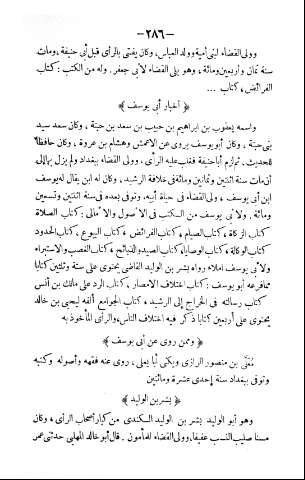 — ٢٨٦ —
وولى القضاء لبنى أمية وولد العباس، وكان يفتى بالرأى قبل أبى حنيفة، ومات
سنة ثمان وأربعين ومائة، وهو يلى القضاء لأبى جعفر. وله من الكتب: كتاب
الفرائض، كتاب ...
﴿ أخبار أبى يوسف ﴾
واسمه يعقوب بن ابراهيم بن حبيب بن سعد بن حبتة، وكان سعد سيد
بنى حبتة، وكان أبو يوسف يروى عن الاعمش وهشام بن عروة، وكان حافظا
للحديث. ثم لزم أبا حنيفة فغلب عليه الرأى. وولى القضاء ببغداد ولم يزل بها إلى
أن مات سنة اثنتين وثمانين ومائة فى خلافة الرشيد. وكان له ابن يقال له يوسف
ابن أبى يوسف، ولى القضاء فى حياة أبيه، وتوفى بعده فى سنة اثنتين وتسعين
ومائة، ولأبى يوسف من الكتب فى الأصول والأمالى: كتاب الصلاة
كتاب الزكاة، كتاب الصيام، كتاب الفرائض، كتاب البيوع، كتاب الحدود
كتاب الوكالة، كتاب الوصايا، كتاب الصيد والذبائح، كتاب الغصب والاستبراء
ولأبى يوسف املاء رواه بشر بن الوليد القاضى يحتوى على ستة وثلثين كتابا
مما فرعه أبو يوسف: كتاب اختلاف الامصار، كتاب الرد على مالك بن أنس
كتاب رسالته فى الخراج إلى الرشيد، كتاب الجوامع ألفه ليحيى بن خالد
يحتوى على أربعين كتابا ذكر فيه اختلاف الناس، والرأى المأخوذ به
﴿ وممن روى عن أبى يوسف ﴾
مُعَلَّى بن منصور الرازى ويكنى أبا يعلى، روى عنه فقهه وأصوله وكتبه
وتوفى ببغداد سنة إحدى عشرة ومائتين
﴿ بشر بن الوليد ﴾
وهو أبو الوليد بشر بن الوليد الكندى من كبار أصحاب الرأى، وكان
مسنا صليب النسب عفيفا، وولى القضاء للمأمون. قال أبو خالد المهلبى حدثنى عمر